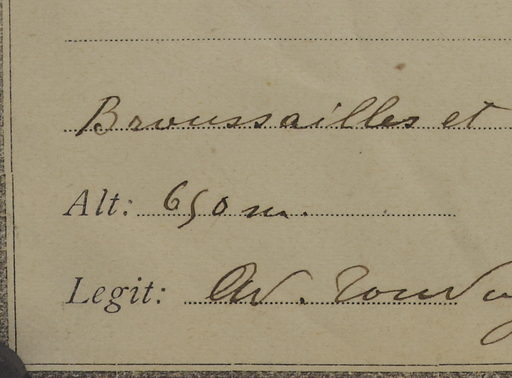 Broussailles et
Alt: 650 m.
Legit: